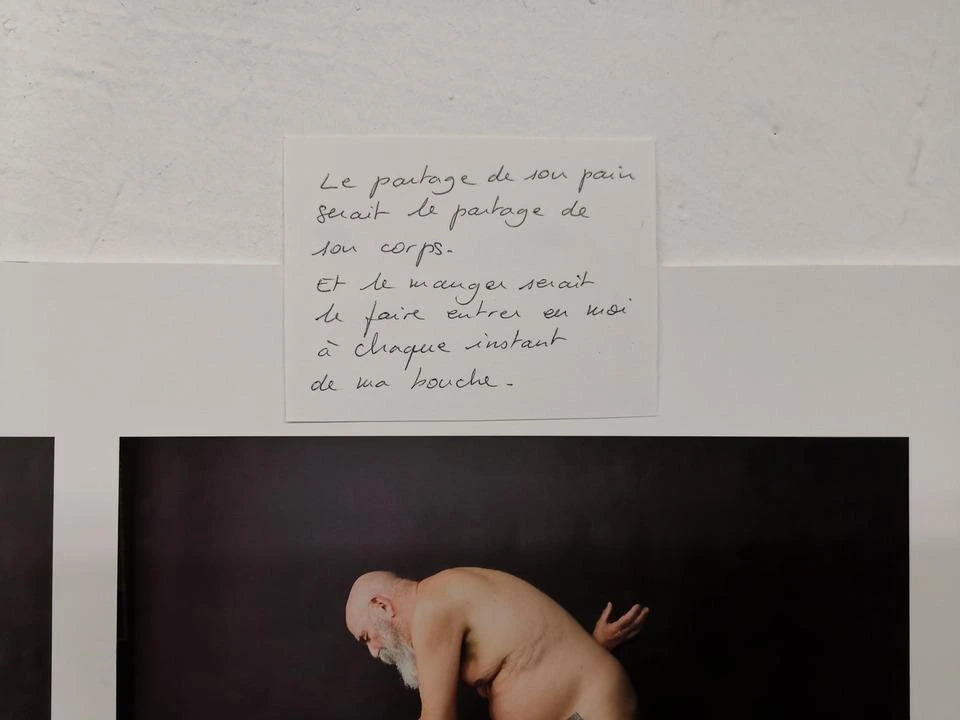 Le partage de son pain
serait le partage de
son corps.
Et le manger serait
le faire entrer en moi
à chaque instant
de ma bouche.